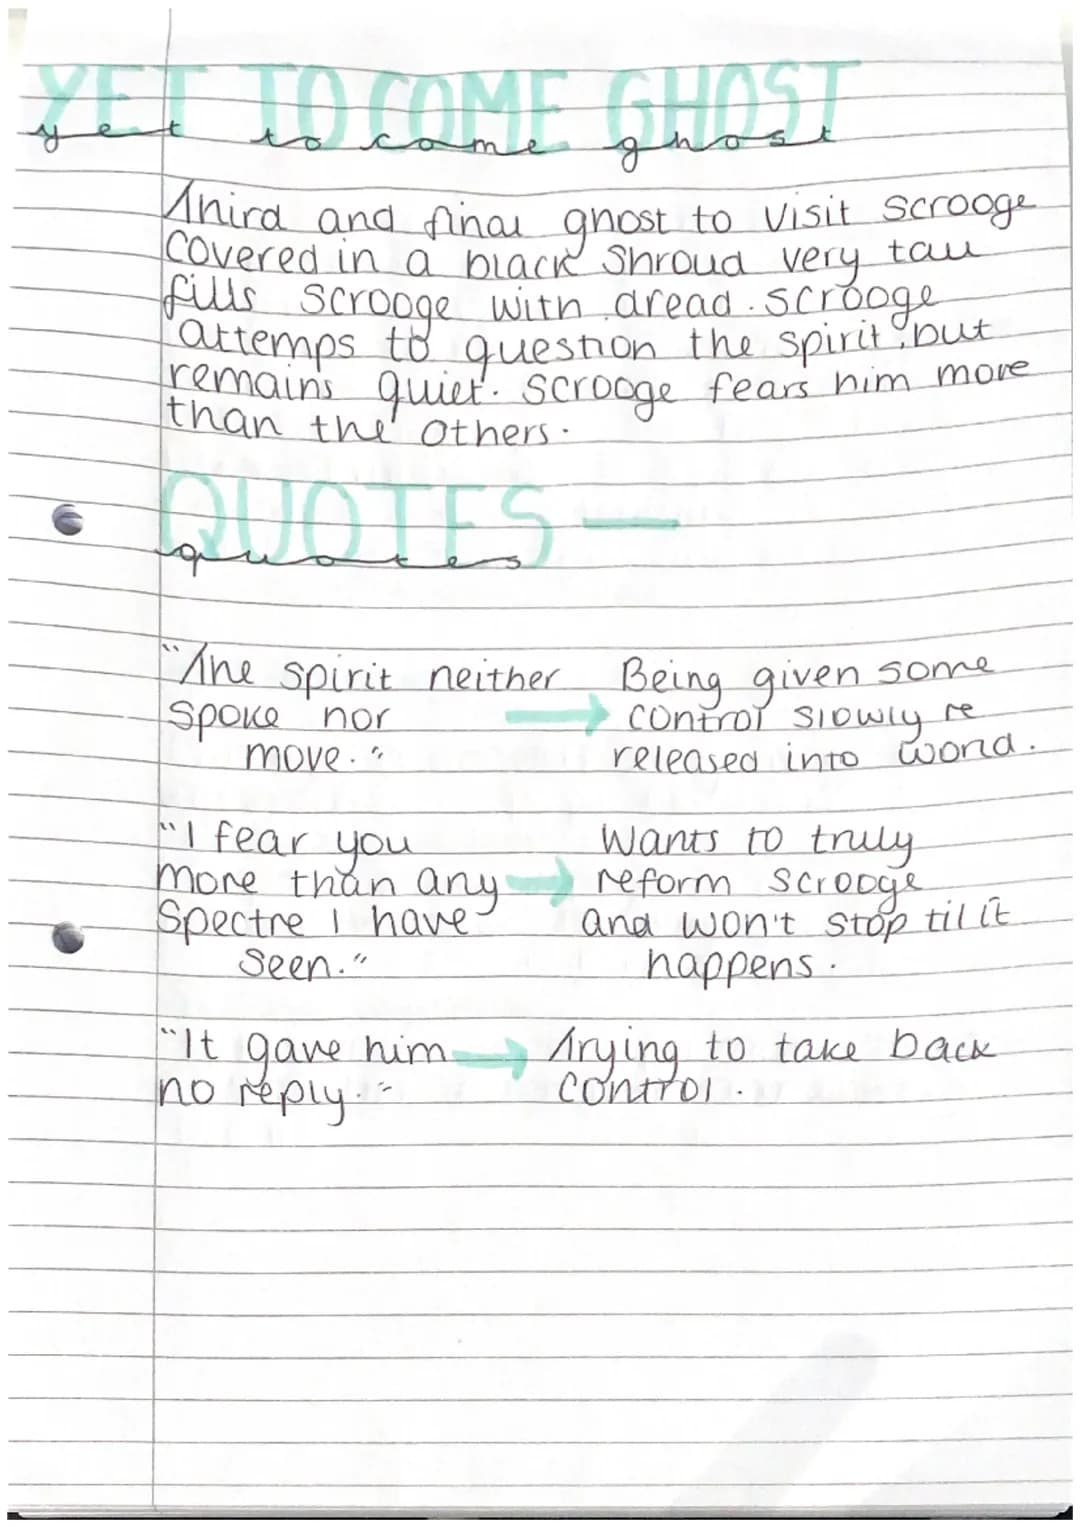 YET TO COME GHOST
yet to come ghost
Third and final ghost to visit Scrooge
Covered in a black Shroud very tall
fills Scrooge with dread. Scrooge
attemps to question the spirit, but
remains quiet. Scrooge fears him more
than the others.
QUOTES —
quotes
"The spirit neither
spoke nor
move."
Being given some
control slowly re
released into world.
"I fear you
more than any
Spectre I have
Seen."
Wants to truly
reform Scrooge
and won't stop til it
happens.
"It gave him
no reply."
Trying to take back
control.